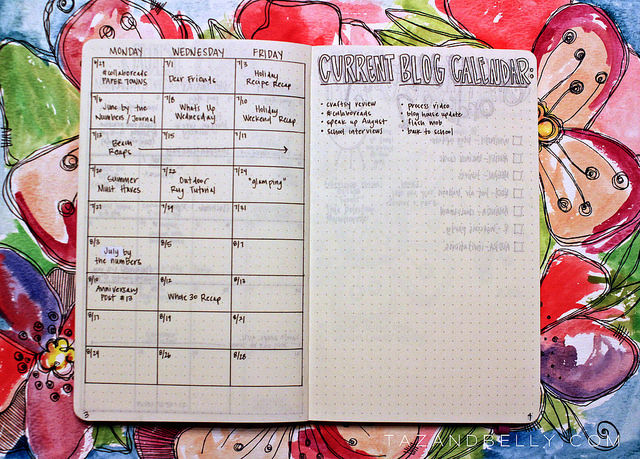 MONDAY WEDNESDAY FRIDAY
7/1
7/3
@collaboreads
PAPER TOWNS
Dear Friends
Holiday
Recipe Recap
7/6
7/8
7/10
June by the
Numbers / Journal
What's Up
Wednesday
Holiday
Weekend Recap
7/13
7/15
7/17
Beach
Recaps
7/20
7/22
7/24
Summer
Must Haves
Outdoor
Rug Tutorial
"glamping"
7/27
7/29
7/31
8/3
8/5
8/7
July by
the numbers
8/10
8/12
Anniversary
Post #13
Whole 30 Recap
8/17
8/19
8/21
8/26
8/28
3
CURRENT BLOG CALENDAR:
• craftsy review
• #collaboreads
• speak up August
• school interviews
• process video
• blog house update
• flash mob
• back to school
4
TAZANDBELLY.COM